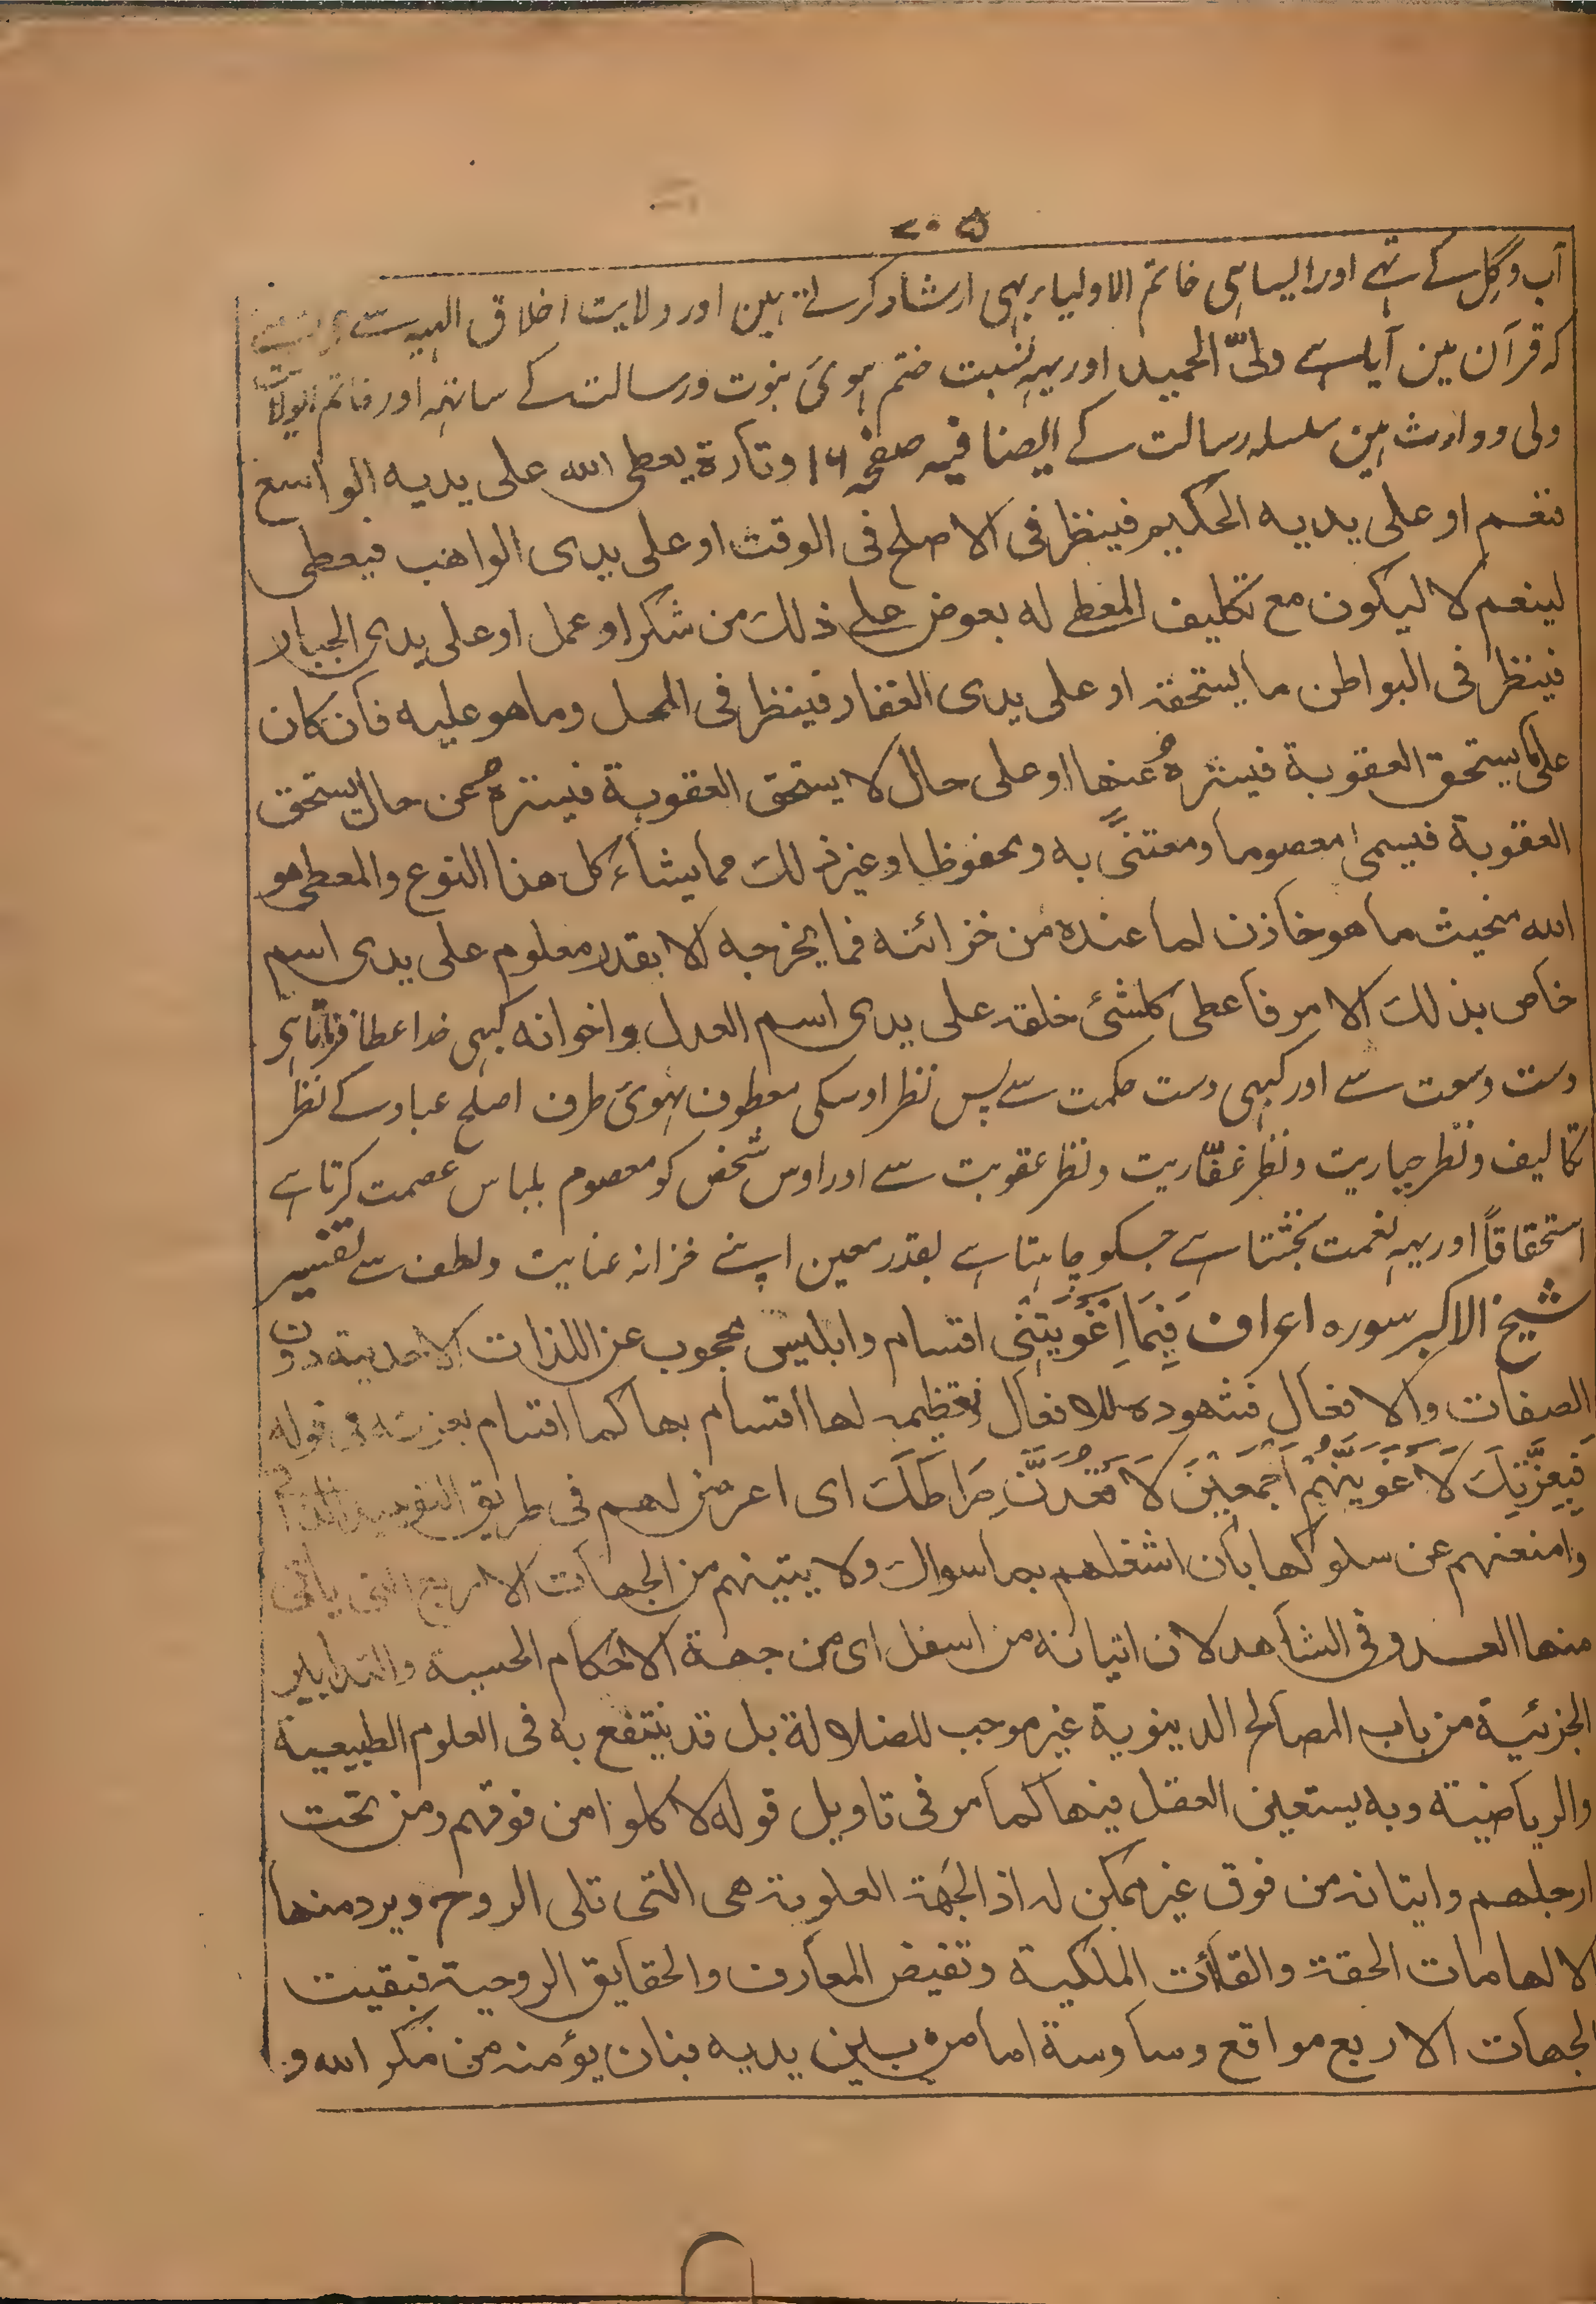 ۲۰۵
آب و گِل کے تہے اور ایسا ہی خاتم الاولیا بہی ارشاد کرتے ہین اور ولایت اخلاق الہیہ سے
کہ قرآن مین آیا ہے ولیّ الحمید اور یہہ نسبت ختم ہوئی نبوت و رسالت کے ساتہہ اور خاتم
ولی و وارث ہین سلسلہ رسالت کے ایضا فیہ صفحہ ۱۶ وتارة یعطی الله علی یدیه الواسع
فنعم او علی یدیه الحکیم فینظر فی الاصلح فی الوقت او علی یدی الواهب فیعطی
لینعم لا لیکون مع تکلیف المعطے له بعوض علے ذلک من شکر او عمل او علی یدی الجبار
فینظر فی البواطن ما یستحقه او علی یدی الغفار فینظر فی المحل وما هو علیه فان کان
علی یستحق العقوبة فیسترہ عنها او علی حال لا یستحق العقوبة فیسترہ عن حال یستحق
العقوبة فیسمی معصوما و معتنیً به و محفوظا و غیر ذلک مما یشاء کل هذا النوع والمعطی هو
الله منحیث ما هو خازن لما عنده من خزائنه فما یخرجه الا بقدر معلوم علی یدی اسم
خاص بذلک الامر فاعطی کلشئ خلقه علی یدی اسم العدل واخوانه کبہی خدا عطا فرماتا ہی
دست وسعت سے اور کبہی دست حکمت سے پس نظر اوسکی معطوف ہوئی طرف اصلح عباد کے نظر
تکالیف و نظر جباریت و نظر غفّاریت و نظر عقوبت سے اور اوس شخص کو معصوم بلباس عصمت کرتا ہے
استحقاقاً اور یہہ نعمت بخشتا ہے جسکو چاہتا ہے بقدر معین اپنے خزانہ عنایت و لطف سے تفسیر
شیخ الاکبر سوره اعراف فَبِمَا اَغْوَیْتَنِی اقتسام وابلیس محجوب عن اللذات الاحدیة دون
الصفات والافعال فشهوده للافعال وتعظیمه لها اقتسام بها کما اقتسام بعزته فی قوله
فَبِعِزَّتِکَ لَاُغْوِیَنَّهُمْ اَجْمَعِیْنَ لَاَقْعُدَنَّ صِرَاطَکَ ای اعرض لهم فی طریق التوحید
وامنعنهم عن سلوکها بان اشغلهم بما سواک ولا یتینهم من الجهات الاربع التی یاتی
منها العدو فی الشاهد لان اتیانه من اسفل ای من جهة الاحکام الحسیة والتدابیر
الجزئیة من باب المصالح الدینویة غیر موجب للضلالة بل قد ینتفع به فی العلوم الطبیعیة
والریاضیة وبه یستعین العقل فیها کما مر فی تاویل قوله لاکلوا من فوقهم ومن تحت
ارجلهم وایتانه من فوق غیر ممکن له اذ الجهة العلویة هی التی تلی الروح ویرد منها
الالهامات الحقة والقاآت الملکیة وتفیض المعارف والحقایق الروحیة فبقیت
الجهات الاربع مواقع وساوسة اما من بین یدیه فبان یؤمنه من مکر الله و